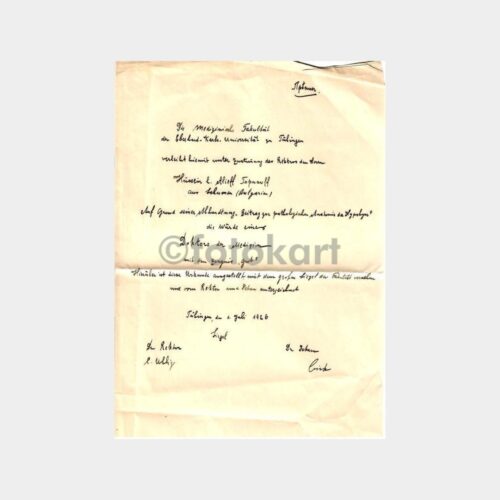 Die Medizinische Fakultät
der Eberhard-Karls-Universität zu Tübingen
verleiht hiemit unter Zustimmung des Rektors dem Herrn
Hussein
aus (Bulgarien)
Auf Grund seiner Abhandlung. Beitrag zur pathologischen Anatomie der
die Würde eines
Doktors der Medizin
©fotokart
mit dem Zeugnis "gut"
ist diese Urkunde ausgestellt mit dem großen Siegel der Fakultät versehen
und vom Rektor und Dekan unterzeichnet
Tübingen, den Juli 1926
Siegel
Der Rektor
Der Dekan